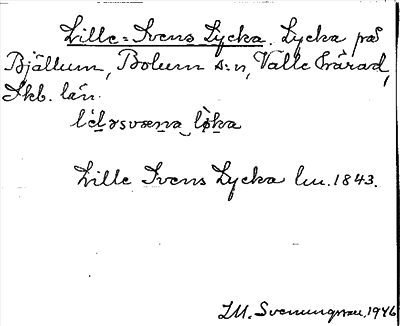 Lille-Svens Lycka. Lycka på
Bjällum, Bolum s:n, Valle härad,
Skb. län.
Lille Svens Lycka lm. 1843.
I.M. Svenungsson, 1946